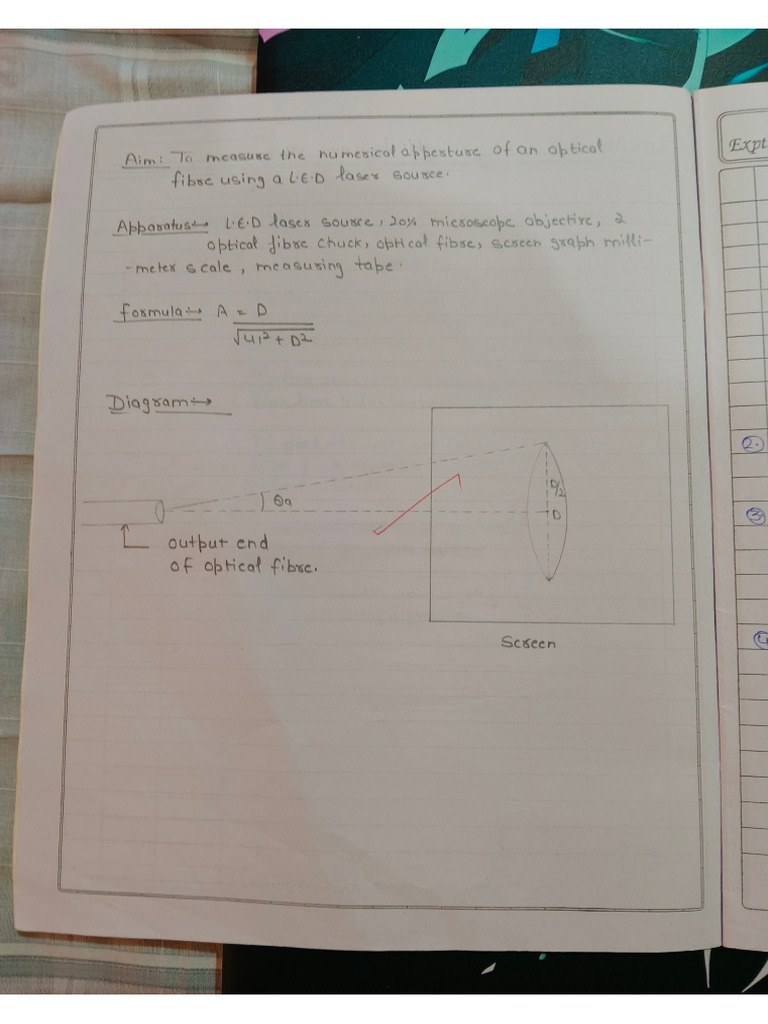 Aim: To measure the numerical apperture of an optical
fibre using a L.E.D laser source.
Apparatus:→ L.E.D laser source, 20% microscope objective, 2
optical fibre chuck, optical fibre, screen graph milli-
-meter scale, measuring tape.
Formula:→ A = D
√4l² + D²
Diagram:→
D/2
θa
D
output end
of optical fibre.
Screen
Expt
2.
3.
4